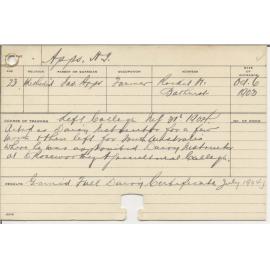 Apps. H. J.
AGE RELIGION PARENT OR GUARDIAN OCCUPATION ADDRESS DATE OF ENTRANCE
23 Methodist Jas. Apps Farmer Rocket St. Bathurst Oct. 6 1903
COURSE OF TRAINING Left College
Acted as Dairy Instructor for a few
months then left for South Australia
where he was appointed Dairy Instructor
at Roseworthy Agricultural College.
RESULTS Gained Full Dairy Certificate July 1904